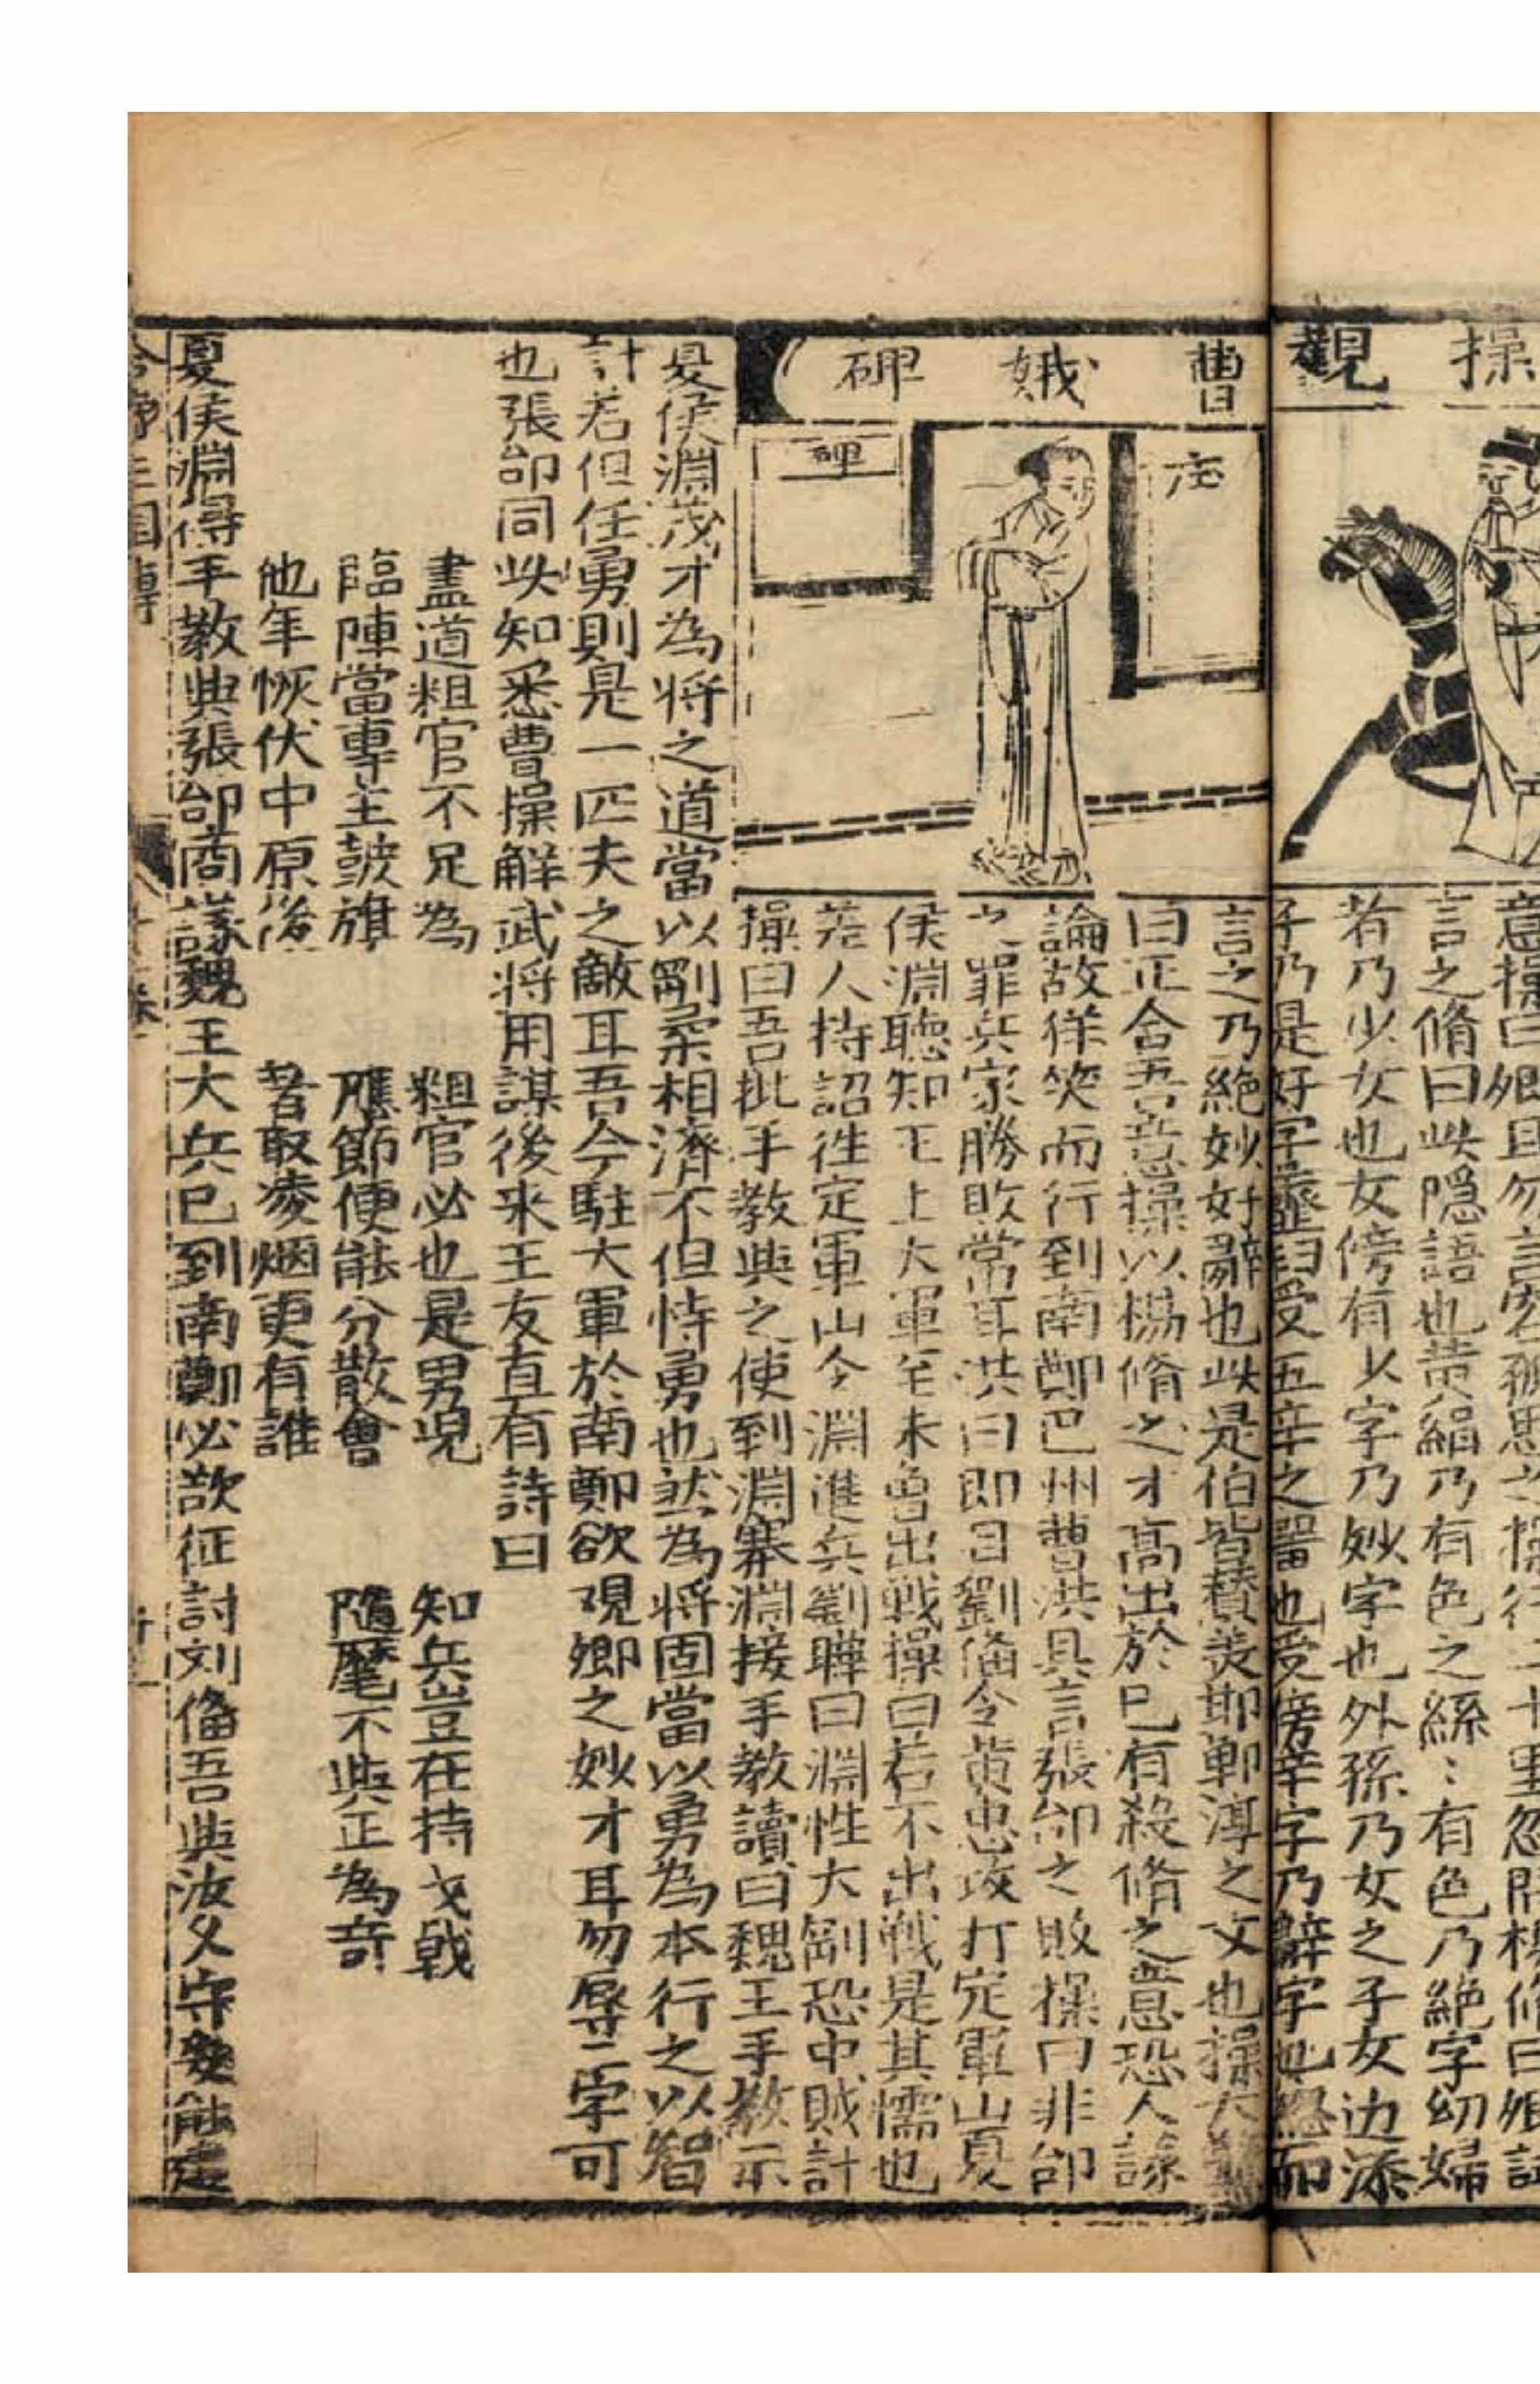 操觀
意操曰卿且勿言容孤思之操行二十里忽問楊脩曰卿試
言之脩曰此隱語也黃絹乃有色之絲〻有色乃絕字幼婦
者乃少女也女傍有少字乃妙字也外孫乃女之子女边添
子乃是好字虀臼受五辛之噐也受傍辛字乃辭字也緫而
曹娥碑
庄
碑
言之乃絕妙好辭也此是伯皆賛羙邯鄲淳之文也操大驚
曰正合吾意操以楊脩之才高出於已有殺脩之意恐人議
論故佯笑而行到南鄭巴州曹洪具言張郃之敗操曰非郃
之罪兵家勝敗常耳洪曰即目劉俻令黃忠攻打定軍山夏
侯淵聽知王上大軍至未曾出戰操曰若不出戰是其懦也
差人持詔徃定軍山令淵進兵劉曄曰淵性大剛恐中賊計
操曰吾批手教與之使到淵寨淵接手教讀曰魏王手教示
夏侯淵茂才為将之道當以剛柔相濟不但恃勇也然為将固當以勇為本行之以智
計若但任勇則是一匹夫之敵耳吾今駐大軍於南鄭欲現卿之妙才耳勿辱二字可
也張郃同此知悉曹操觧武将用謀後来王友直有詩曰
盡道粗官不足為 粗官必也是男児 知兵豈在持戈戟
臨陣當專主鼓旗 應節便能分散會 隨麾不與正為竒
他年恢伏中原後 苔取凌烟更有誰
夏侯淵得手教與張郃商議魏王大兵已到南鄭必欲征討刘俻吾與汝久守安能建
三国傳
八卷